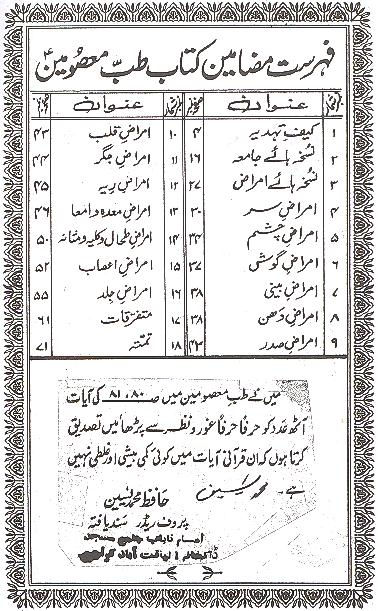 فہرست مضامین کتاب طبّ معصومین ؑ
نمبر شمار عنوان صفحہ نمبر شمار عنوان صفحہ
۱ کیفت تہدیہ ۴ ۱۰ امراضِ قلب ۴۳
۲ نسخہ ہائے جامعہ ۱۶ ۱۱ امراضِ جگر ۴۴
۳ نسخہ ہائے امراض ۲۷ ۱۲ امراضِ ریہ ۴۵
۴ امراضِ سر ۳۰ ۱۳ امراضِ معدہ و امعا ۴۶
۵ امراضِ چشم ۳۴ ۱۴ امراضِ طحال و کلیہ و مثانہ ۵۰
۶ امراضِ گوش ۳۷ ۱۵ امراضِ اعصاب ۵۲
۷ امراضِ بینی ۳۸ ۱۶ امراضِ جلد ۵۵
۸ امراضِ دھن ۳۸ ۱۷ متفرقات ۶۱
۹ امراضِ صدر ۴۲ ۱۸ تمتہ ۷۱
میں نے طب معصومین میں صہ ۸۰، ۸۱ کی آیات
آٹھ عدد کو حرفاً حرفاً غور و نظر سے پڑھا میں تصدیق
کرتا ہوں کہ ان قرآنی آیات میں کوئی کمی بیشی اور غلطی نہیں
ہے۔ محمد یٰسین
حافظ محمد یٰسین
پروف ریڈر سند یافتہ
امام نائب جامع مسجد
ڈاکخانہ لیاقت آباد کراچی